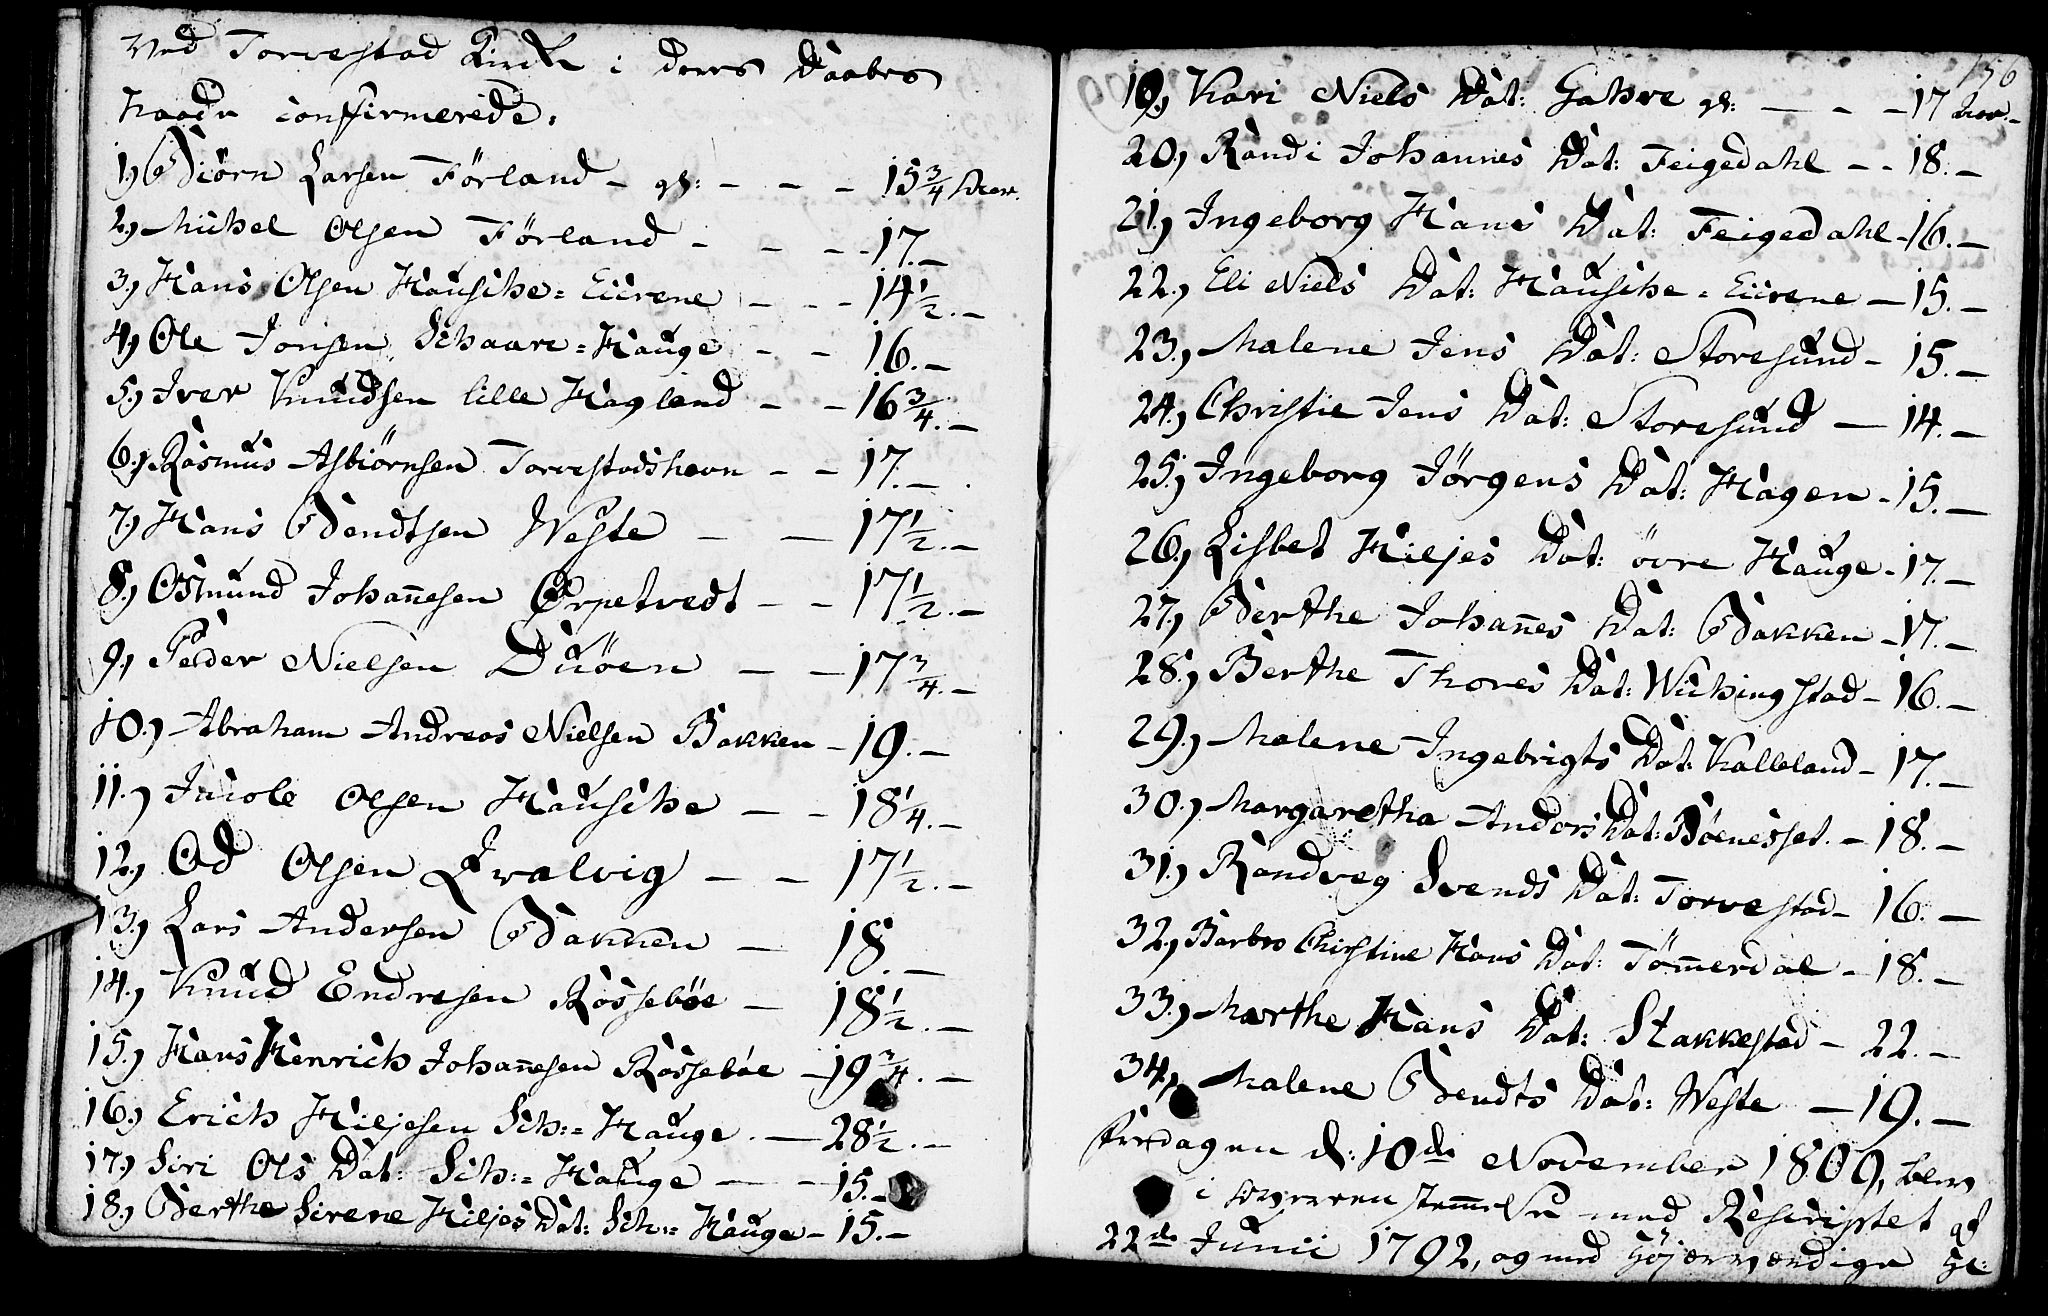 ved Torvestad Kirke i deres Daabes
Naade confirmerede.
1.) Biörn Larsen Förland - gl: - - - 15 3/4 Aar.
2.) Michel Olsen Förland - - - 17.-
3.) Hans Olsen Hausche = Eiérene - - - 14 1/2.-
4.) Ole Jonsen Schaare = Hauge - - 16.-
5.) Iver Knudsen lille Hagland - - 16 3/4.-
6.) Rasmus Asbiörnsen Torvestadshavn - - 17.-
7.) Hans Bendtsen Weste - - 17 1/2.-
8.) Osmund Johan̄esen Ørpetvedt - - 17 1/2.-
9.) Peder Nielsen Duöen - - 17 3/4.-
10.) Abraham Andreas Nielsen Bakken - 19.-
11.) Olsen Hausche - - 18 1/4.-
12.) Od Olsen Qvalvig - - 17 1/2.-
13.) Lars Andersen Bakken - 18.-
14.) Knud Endresen Rossebøe - 18 1/2.-
15.) Hans Henrich Johan̄esen Rossebøe - 19 3/4.-
16.) Erich Kiljesen Sch:= Hauge. - 28 1/2.-
17.) Siri Ols Dat: Sch:= Hauge - - 15.-
18.) Berthe Sirene Kiljes Dat: Sch:= Hauge - 15.-
156
19.) Kari Niels Dat: Gahre gl: - - - 17 Aar.-
20.) Randi Johannes Dat: Feigedahl - - 18.-
21.) Ingeborg Hans Dat: Feigedahl - 16.-
22.) Eli Niels Dat: Hausche = Eiérene - 15.-
23.) Malene Jens Dat: Storesund - 15.-
24.) Christie Jens Dat: Storesund - 14.-
25.) Ingeborg Jörgens Dat: Hagen - 15.-
26.) Lisbet Kiljes Dat: övre Hauge - 17.-
27.) Berthe Johan̄es Dat: Bakken - 17.-
28.) Berthe Thores Dat: Wichingstad - 16.-
29.) Malene Ingebrigts Dat: Kalleland - 17.-
30.) Margaretha Anders Dat: Böenesset. - 18.-
31.) Randveg Svends Dat: Torvestad - 16.-
32.) Barbro Christine Hans Dat: Töm̄erdal - 18.-
33.) Marthe Hans Dat: Stakkestad - 22.-
34.) Malene Bendts Dat: Weste - 19.-
Fredagen d: 10de November 1809, blev
i overeenstem̄else med Rescriptet af
22de Junii 1792, og med Höjærværdige Hr: